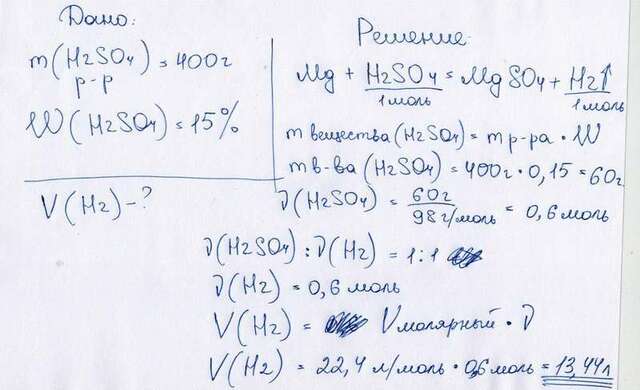 Дано:
m(H2SO4) = 400г
р-р
W(H2SO4) = 15%
V(H2) - ?
Решение
Mg + H2SO4 = MgSO4 + H2↑
1 моль 1 моль
m вещества (H2SO4) = m р-ра · W
m в-ва (H2SO4) = 400г · 0,15 = 60г
ν(H2SO4) = 60г / 98 г/моль = 0,6 моль
ν(H2SO4) : ν(H2) = 1:1
ν(H2) = 0,6 моль
V(H2) = Vмолярный · ν
V(H2) = 22,4 л/моль · 0,6 моль = 13,44 л